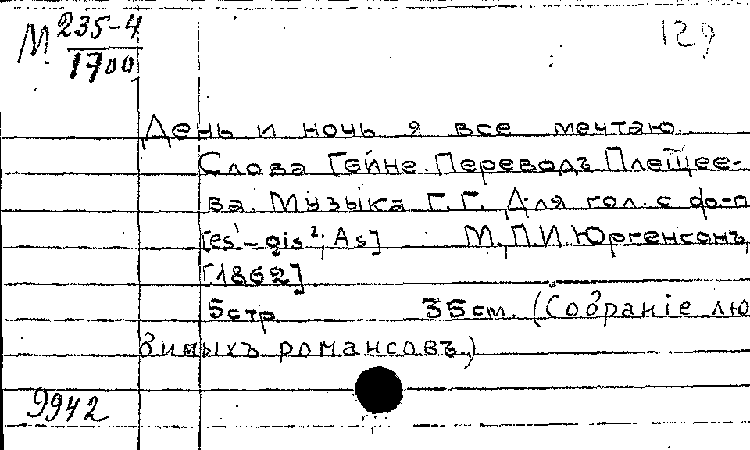 М 235-4
1700
129
День и ночь я все мечтаю.
Слова Гейне. Переводъ Плещее-
ва. Музыка Г. Г. Для гол. с фо-п
[es¹-gis²; As] М., П. И. Юргенсонъ,
[1862]
5стр 35см. (Собраніе лю
бимыхъ романсовъ.)
9942